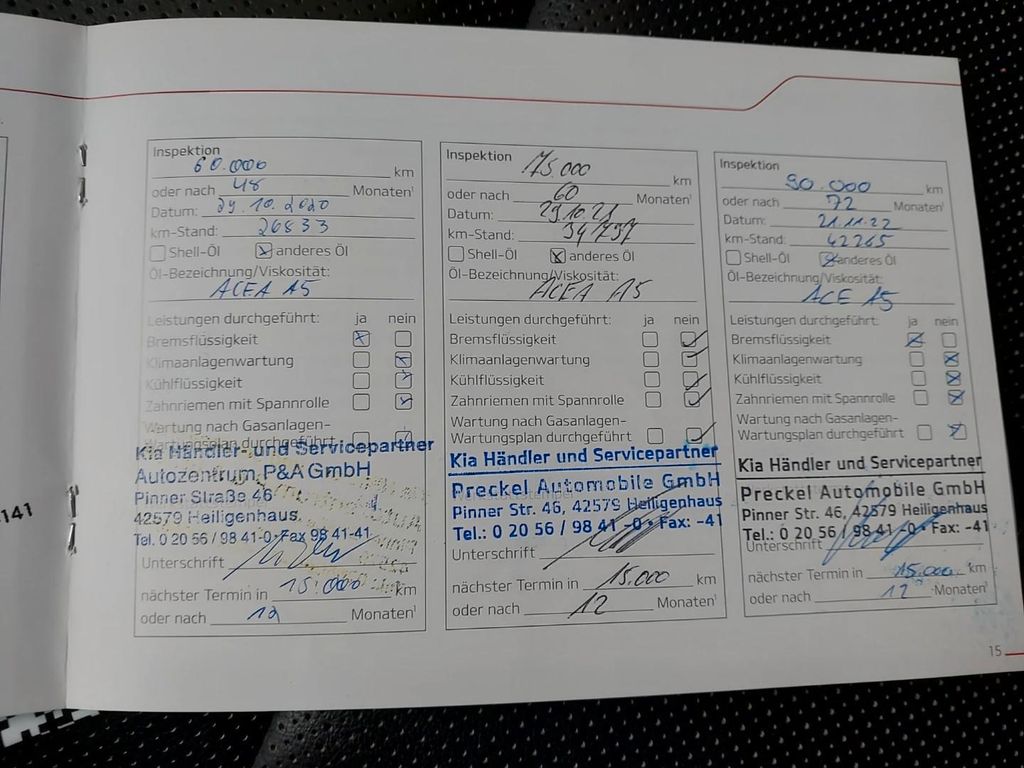 Inspektion
60.000 km
oder nach 48 Monaten¹
Datum: 29.10.2020
km-Stand: 26833
Shell-Öl anderes Öl
Öl-Bezeichnung/Viskosität:
ACEA A5
Leistungen durchgeführt: ja nein
Bremsflüssigkeit
Klimaanlagenwartung
Kühlflüssigkeit
Zahnriemen mit Spannrolle
Wartung nach Gasanlagen-
Wartungsplan durchgeführt
Kia Händler- und Servicepartner
Autozentrum P&A GmbH
Pinner Straße 46
42579 Heiligenhaus
Tel. 0 20 56 / 98 41-0 • Fax 98 41-41
Unterschrift
nächster Termin in 15.000 km
oder nach 12 Monaten¹
Inspektion 75.000
km
oder nach 60 Monaten¹
Datum: 29.10.21
km-Stand: 34797
Shell-Öl anderes Öl
Öl-Bezeichnung/Viskosität:
ACEA A5
Leistungen durchgeführt: ja nein
Bremsflüssigkeit
Klimaanlagenwartung
Kühlflüssigkeit
Zahnriemen mit Spannrolle
Wartung nach Gasanlagen-
Wartungsplan durchgeführt
Kia Händler und Servicepartner
Preckel Automobile GmbH
Pinner Str. 46, 42579 Heiligenhaus
Tel.: 0 20 56 / 98 41 -0 • Fax: -41
Unterschrift
nächster Termin in 15.000 km
oder nach 12 Monaten¹
Inspektion
90.000 km
oder nach 72 Monaten¹
Datum: 21.11.22
km-Stand: 42265
Shell-Öl anderes Öl
Öl-Bezeichnung/Viskosität:
ACE A5
Leistungen durchgeführt: ja nein
Bremsflüssigkeit
Klimaanlagenwartung
Kühlflüssigkeit
Zahnriemen mit Spannrolle
Wartung nach Gasanlagen-
Wartungsplan durchgeführt
Kia Händler und Servicepartner
Preckel Automobile GmbH
Pinner Str. 46, 42579 Heiligenhaus
Tel.: 0 20 56 / 98 41 -0 • Fax: -41
Unterschrift
nächster Termin in 15.000 km
oder nach 12 Monaten¹
15
141